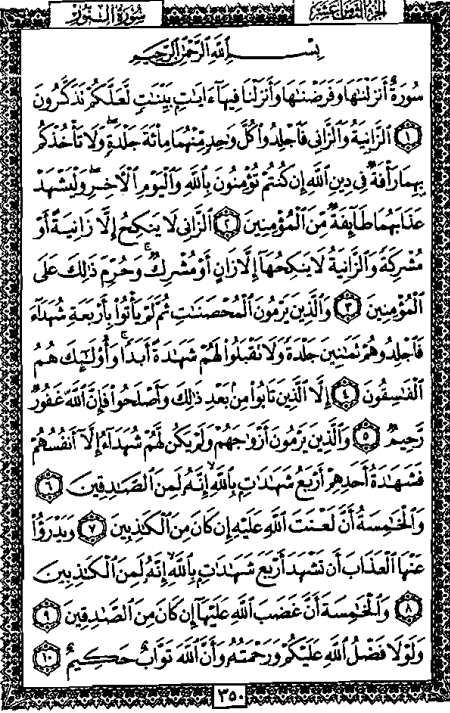 الجزء الثامن عشر
سورة النور
بِسْمِ اللَّهِ الرَّحْمَٰنِ الرَّحِيمِ
سُورَةٌ أَنزَلْنَٰهَا وَفَرَضْنَٰهَا وَأَنزَلْنَا فِيهَآ ءَايَٰتٍۭ بَيِّنَٰتٍ لَّعَلَّكُمْ تَذَكَّرُونَ
١ ٱلزَّانِيَةُ وَٱلزَّانِى فَٱجْلِدُوا۟ كُلَّ وَٰحِدٍ مِّنْهُمَا مِا۟ئَةَ جَلْدَةٍ ۖ وَلَا تَأْخُذْكُم
بِهِمَا رَأْفَةٌ فِى دِينِ ٱللَّهِ إِن كُنتُمْ تُؤْمِنُونَ بِٱللَّهِ وَٱلْيَوْمِ ٱلْءَاخِرِ ۖ وَلْيَشْهَدْ
عَذَابَهُمَا طَآئِفَةٌ مِّنَ ٱلْمُؤْمِنِينَ ٢ ٱلزَّانِى لَا يَنكِحُ إِلَّا زَانِيَةً أَوْ
مُشْرِكَةً وَٱلزَّانِيَةُ لَا يَنكِحُهَآ إِلَّا زَانٍ أَوْ مُشْرِكٌ ۚ وَحُرِّمَ ذَٰلِكَ عَلَى
ٱلْمُؤْمِنِينَ ٣ وَٱلَّذِينَ يَرْمُونَ ٱلْمُحْصَنَٰتِ ثُمَّ لَمْ يَأْتُوا۟ بِأَرْبَعَةِ شُهَدَآءَ
فَٱجْلِدُوهُمْ ثَمَٰنِينَ جَلْدَةً وَلَا تَقْبَلُوا۟ لَهُمْ شَهَٰدَةً أَبَدًا ۚ وَأُو۟لَٰٓئِكَ هُمُ
ٱلْفَٰسِقُونَ ٤ إِلَّا ٱلَّذِينَ تَابُوا۟ مِنۢ بَعْدِ ذَٰلِكَ وَأَصْلَحُوا۟ فَإِنَّ ٱللَّهَ غَفُورٌ
رَّحِيمٌ ٥ وَٱلَّذِينَ يَرْمُونَ أَزْوَٰجَهُمْ وَلَمْ يَكُن لَّهُمْ شُهَدَآءُ إِلَّآ أَنفُسُهُمْ
فَشَهَٰدَةُ أَحَدِهِمْ أَرْبَعُ شَهَٰدَٰتٍۭ بِٱللَّهِ ۙ إِنَّهُۥ لَمِنَ ٱلصَّٰدِقِينَ ٦
وَٱلْخَٰمِسَةُ أَنَّ لَعْنَتَ ٱللَّهِ عَلَيْهِ إِن كَانَ مِنَ ٱلْكَٰذِبِينَ ٧ وَيَدْرَؤُا۟
عَنْهَا ٱلْعَذَابَ أَن تَشْهَدَ أَرْبَعَ شَهَٰدَٰتٍۭ بِٱللَّهِ ۙ إِنَّهُۥ لَمِنَ ٱلْكَٰذِبِينَ
٨ وَٱلْخَٰمِسَةَ أَنَّ غَضَبَ ٱللَّهِ عَلَيْهَآ إِن كَانَ مِنَ ٱلصَّٰدِقِينَ ٩
وَلَوْلَا فَضْلُ ٱللَّهِ عَلَيْكُمْ وَرَحْمَتُهُۥ وَأَنَّ ٱللَّهَ تَوَّابٌ حَكِيمٌ ١٠
٣٥٠